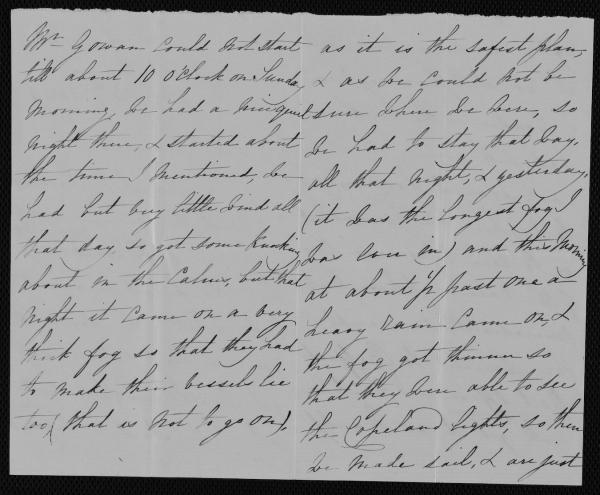 Mr Gowan could not start
till about 10 o'clock on Sunday
Morning, we had a nice quiet
night there, & started about
the time I mentioned, we
had but very little wind all
that day, so got some knocking
about in the calms, but that
night it came on a very
thick fog so that they had
to make their vessels lie
too, (that is not to go on),
as it is the safest plan,
& as we could not be
sure where we were, so
we had to stay that day,
all that night, & yesterday,
(it was the longest fog I
was ever in) and this morning
at about ½ past one a
heavy rain came on, &
the fog got thinner so
that they were able to see
the Copeland lights, so then
we made sail, & are just